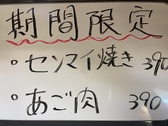 期間限定
・センマイ焼き 390
・あご肉 390